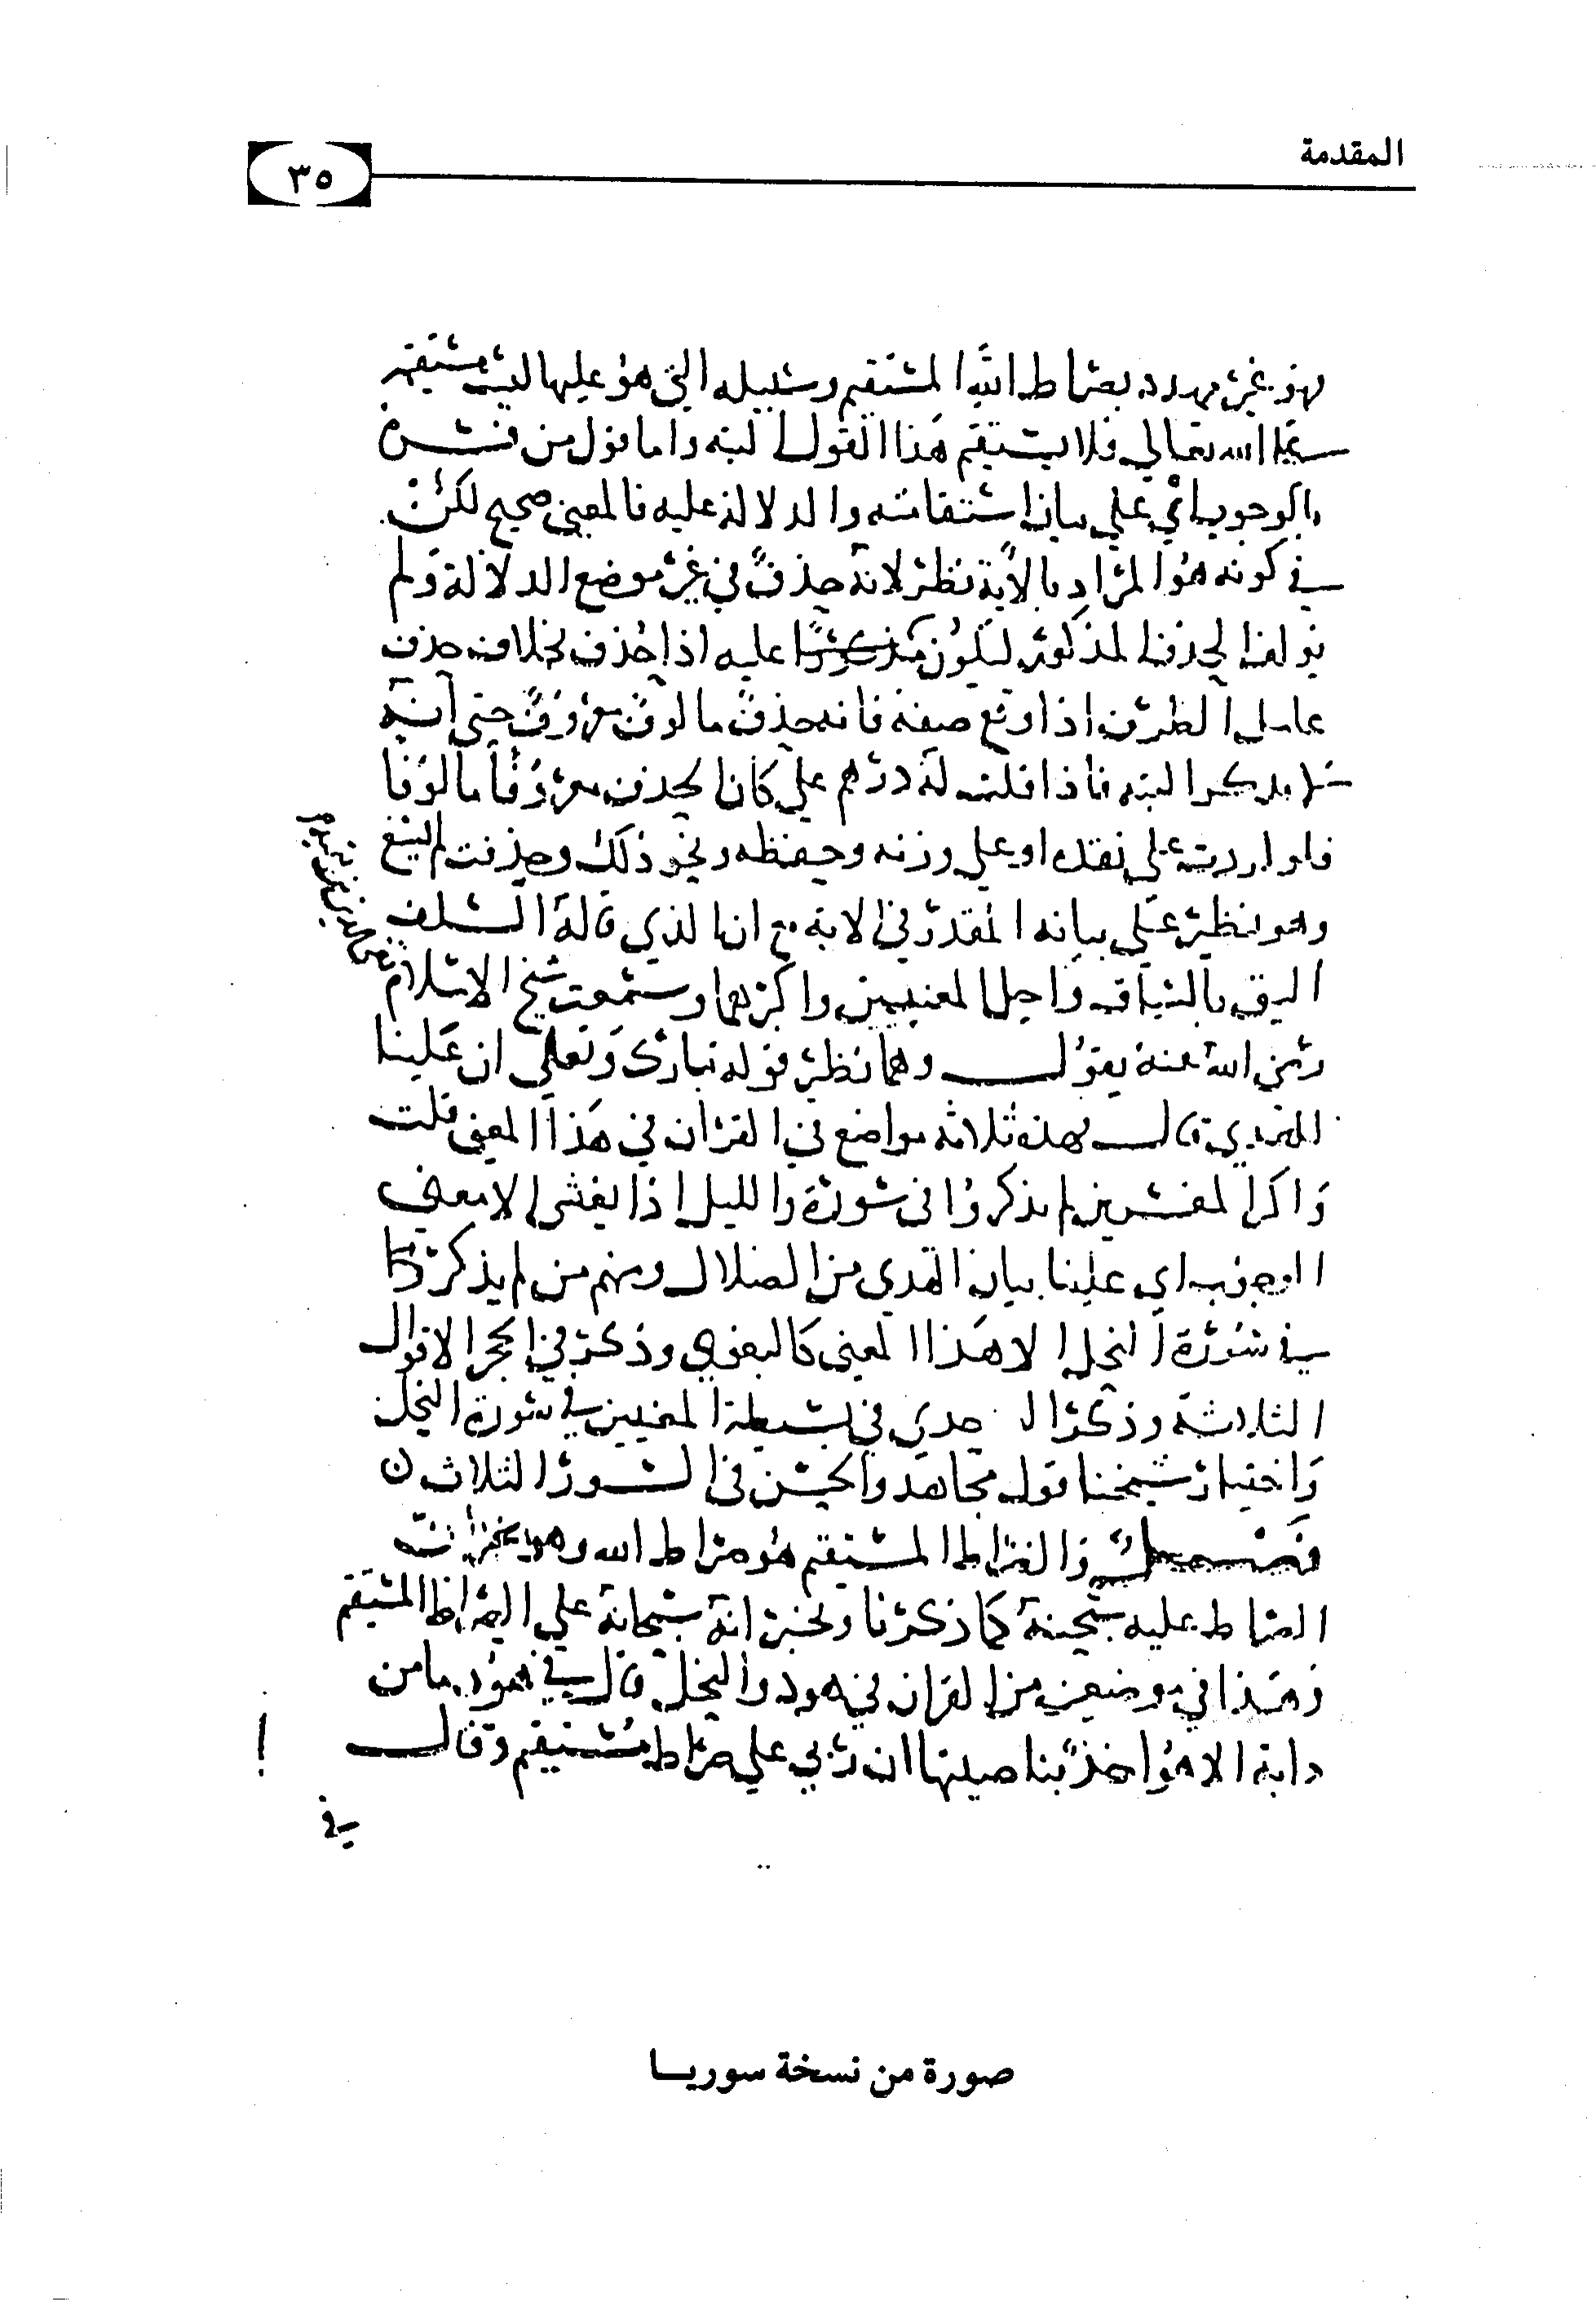 المقدمة
٣٥
فهو غير مهدود بصراط الله المستقيم وسبيله التي هو عليها ليست مستقيمة
علي الله تعالي فلا يستقيم هذا القول البته واما قول من فسره
بالوجوب اي علي بيان استقامته والدلالة عليه فالمعني صحيح لكن
في كونه هو المراد بالاية نظر لانه حذف في غير موضع الدلالة ولم
يولف الحذف المذكور ليكون مدلولا عليه اذا حذف بخلاف حذف
عامل الظرف اذا وقع صفة فانه حذف مالوف معروف حتي انه
لا يذكر البته فاذا قلت له درهم علي كان الحذف معروفا مالوفا
فلو اردت علي نقده او علي وزنه وحفظه ونحو ذلك وحذفت لم يسغ
وهو نظير علي بيانه المقدر في الاية مع ان الذي قاله السلف
اليق بالسياق واجل المعنيين واكبرهما وسمعت شيخ الاسلام
رضي الله عنه يقول وهما نظير قوله تبارك وتعلي ان علينا
للهدي قال فهذه ثلاثه مواضع في القران في هذا المعني قلت
واكثر المفسرين لم يذكروا في سورة والليل اذا يغشي الا معني
الوجوب اي علينا بيان الهدي من الضلال ومنهم من لم يذكر
في سورة النحل الا هذا المعني كالبغوي وذكر في الحجر الاقوال
الثلاثة وذكر الواحدي في بسيطه المعنيين في سورة النحل
واختيار شيخنا قول مجاهد والحسن في السور الثلاث ن
فصل والصراط المستقيم هو صراط الله وهو يخبر ان
الصراط عليه سبحنه كما ذكرنا ويخبر انه سبحانه علي الصراط المستقيم
وهذا في موضعين من القران في هود والنحل قال في هود ما من
دابة الا هو اخذ بناصيتها ان ربي علي صراط مستقيم وقال
في
صورة من نسخة سوريـا